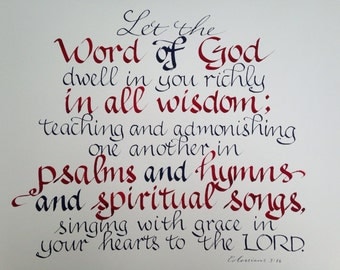 Let the
Word of God
dwell in you richly
in all wisdom;
teaching and admonishing
one another in
psalms and hymns
and spiritual songs,
singing with grace in
your hearts to the LORD.
Colossians 3:16